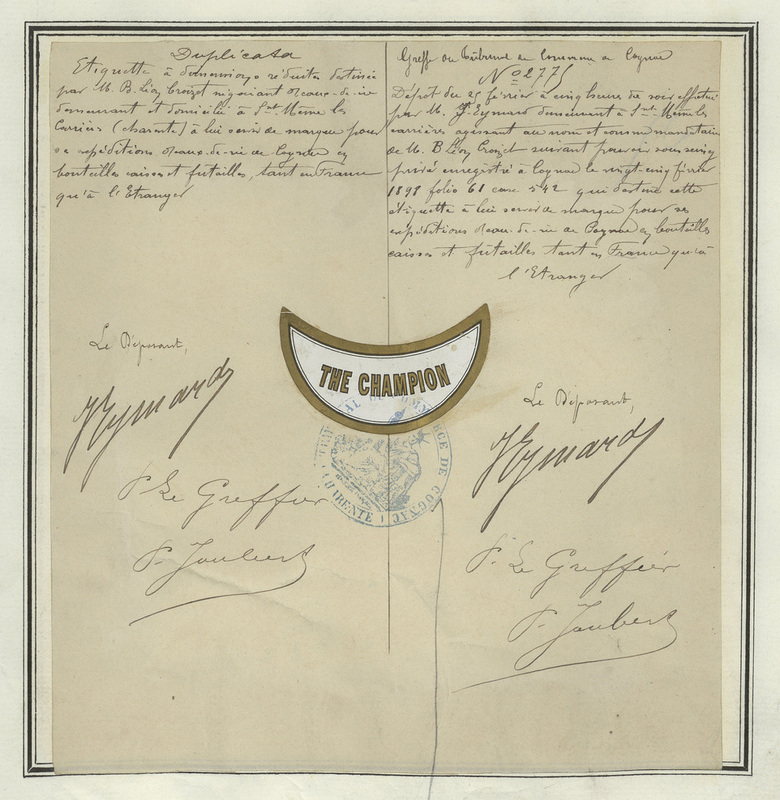 Duplicata
Etiquette à dimensions réduites destinée
par M. B. Léon Croizet négociant d'eaux-de-vie
demeurant et domicilié à Snt Même les
Carrières (Charente) à lui servir de marque pour
ses expéditions d'eaux-de-vie de Cognac en
bouteilles caisses et futailles, tant en France
qu'à l'Etranger
Le Déposant,
J Eymard
P. Le Greffier
P. Joubert
Greffe du Tribunal de Commerce de Cognac
No 2771
Dépôt du 25 février à cinq heures du soir effectué
par M. J. Eymard demeurant à Snt Même les
carrières agissant au nom et comme mandataire
de M. B Léon Croizet suivant pouvoir sous seing
privé enregistré à Cognac le vingt-cinq février
1898 folio 61 case 542 qui destine cette
étiquette à lui servir de marque pour ses
expéditions d'eau-de-vie de Cognac en bouteilles
caisses et futailles tant en France qu'à
l'Etranger
THE CHAMPION
TRIBUNAL DE COMMERCE DE COGNAC
CHARENTE
Le Déposant,
J Eymard
P. Le Greffier
P. Joubert